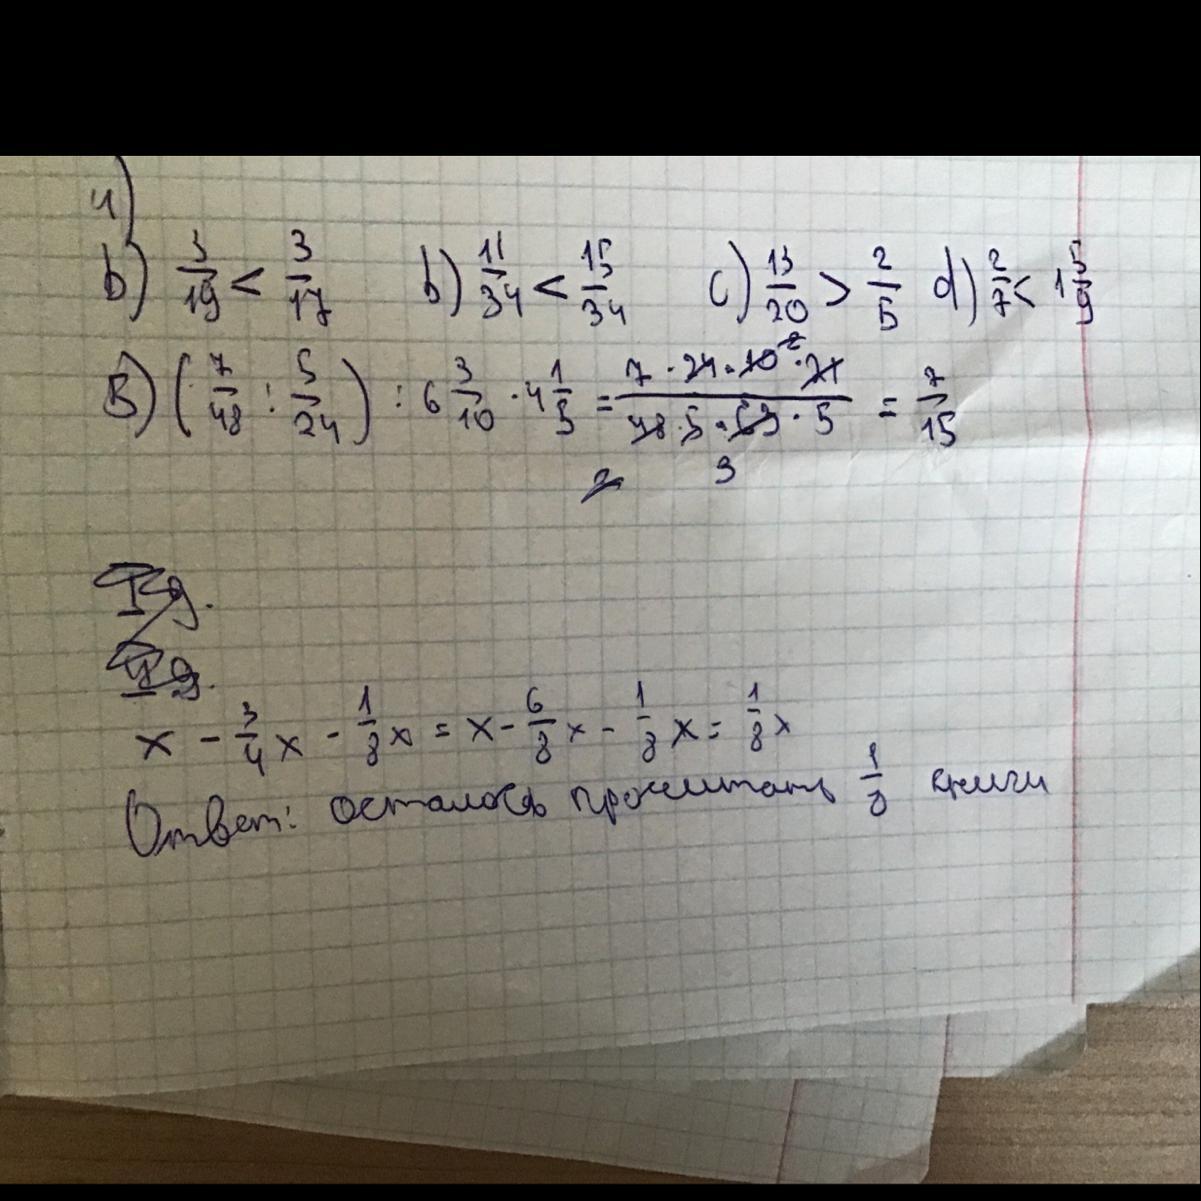 4)
b) 3/19 < 3/17 b) 11/34 < 15/34 c) 13/20 > 2/5 d) 2/7 < 1 5/9
В) (7/48 : 5/24) : 6 3/10 · 4 1/5 = 7 · 24 · 10 · 21 / 48 · 5 · 63 · 5 = 7/15
2
2 3
x - 3/4 x - 1/8 x = x - 6/8 x - 1/8 x = 1/8 x
Ответ: осталось прочитать 1/8 книги